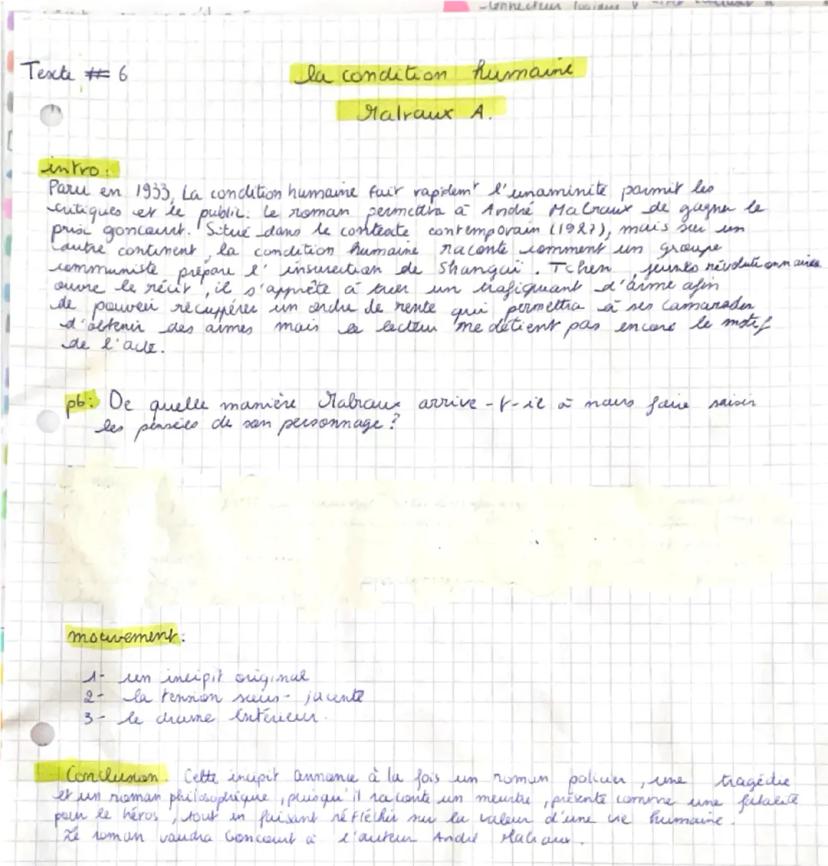 Texte # 6
la condition humaine
Malraux A.
intro:
Paru en 1933, La condition humaine fait rapidemt l'unaminité parmit les
critiques et le public. Le roman permettra à André Malraux de gagner le
prix goncourt. Situé dans le contexte contemporain (1927), mais sur un
autre continent, la condition humaine raconte comment un groupe
communiste prépare l'insurection de Shangui. Tchen, jeunes révolutionnaires
ouvre le récit, il s'apprète à tuer un trafiquant d'arme afin
de pouvoir récuppérer un ordre de vente qui permettra à ses camarades
d'obtenir des armes mais le lecteur ne détient pas encore le motif
de l'acte.
pb: De quelle manière Malraux arrive-t-il à nous faire saisir
les pensées de son personnage ?
mouvement:
1- un incipit original
2- la tension sous-jacente
3- le drame intérieur.
Conclusion. Cette incipit annonce à la fois un roman policier, une tragédie
et un roman philosophique, puisqu'il raconte un meurtre, présenté comme une fatalité
pour le héros, tout en faisant réfléchir sur la valeur d'une vie humaine.
Le roman vaudra Goncourt à l'auteur André Malraux.